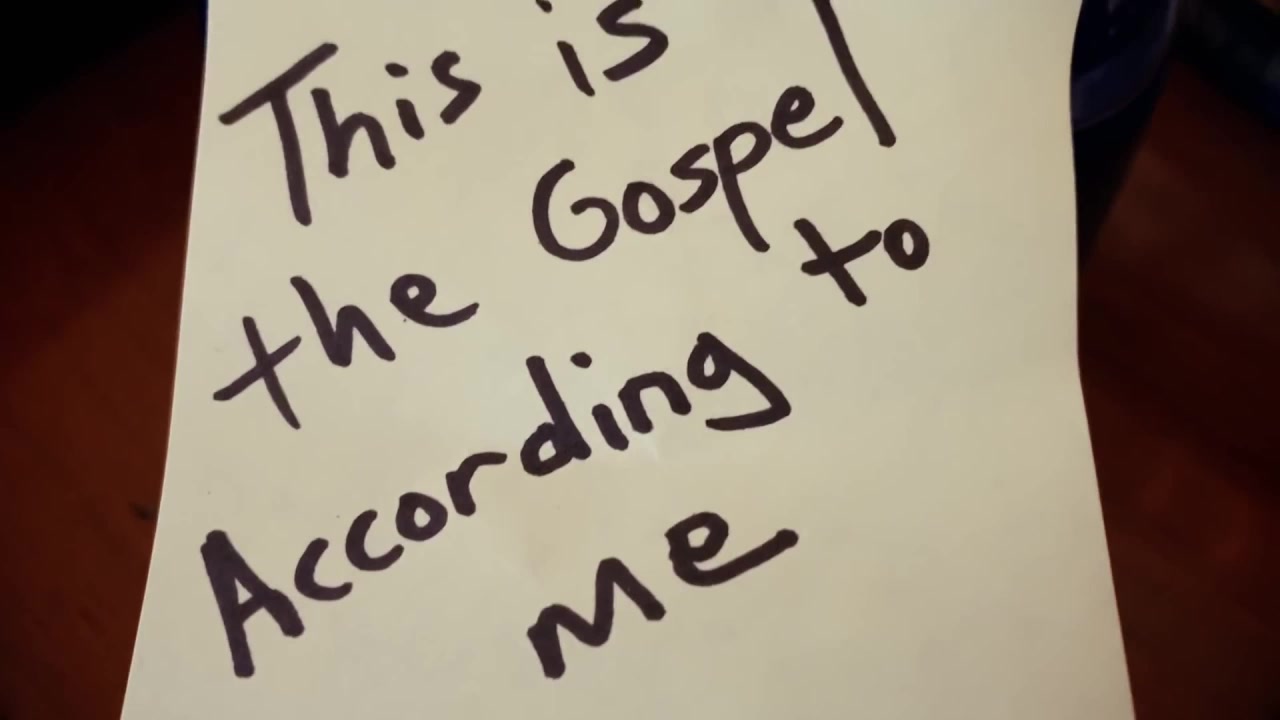 This is
the Gospel
According to
Me